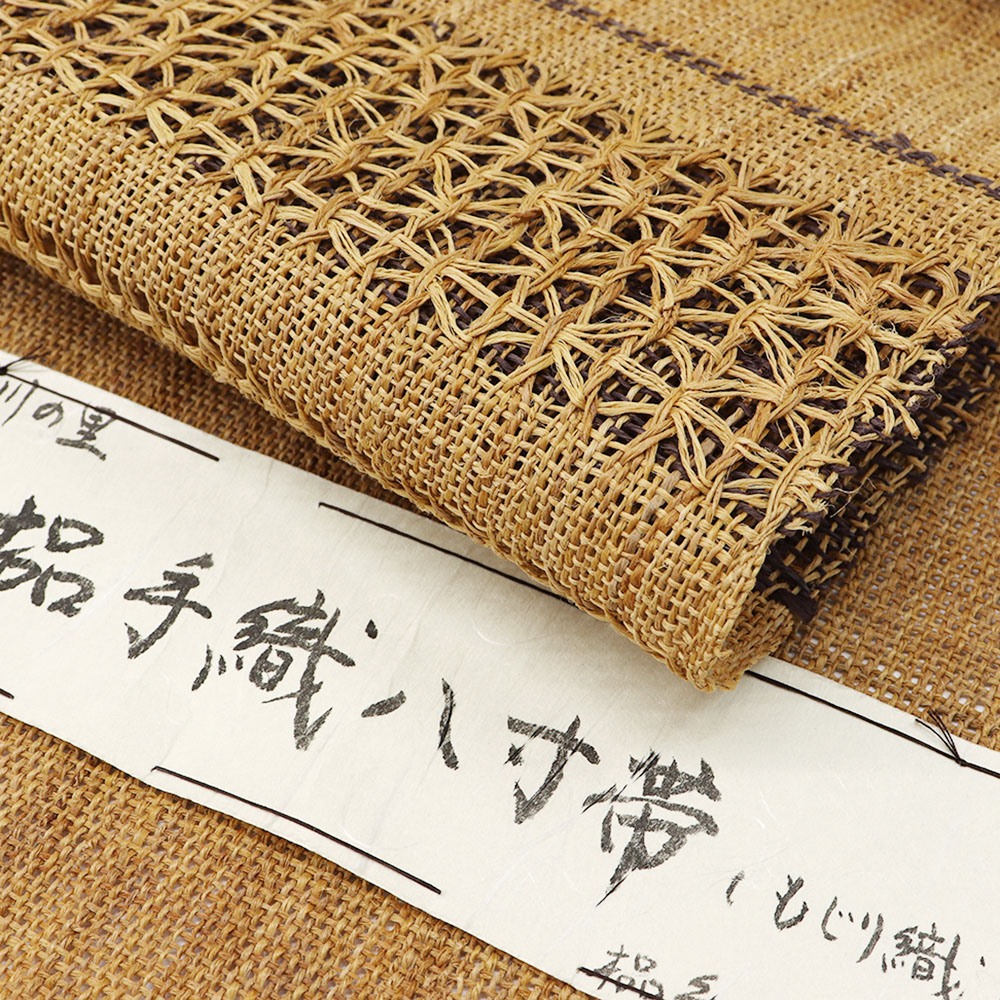 川の里
榀手織八寸帯(もじり織
榀